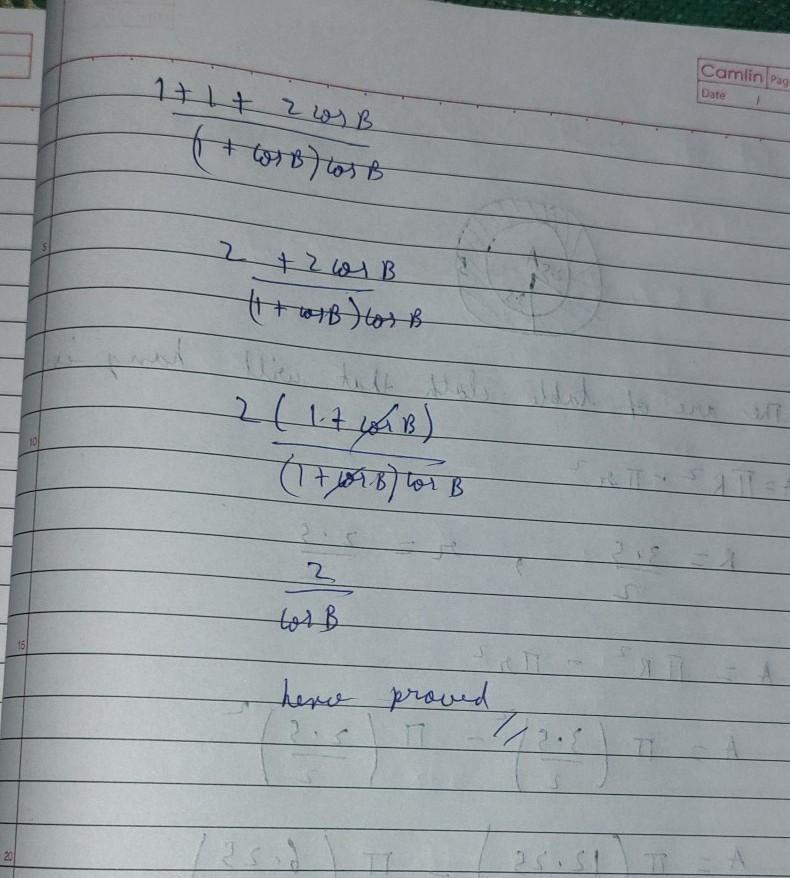 Camlin Pag
Date 1
1 + 1 + 2 cos B
(1 + cos B) cos B
5
2 + 2 cos B
(1 + cos B) cos B
2 (1 + cos B)
10
(1 + cos B) cos B
2
cos B
15
hence proved
20